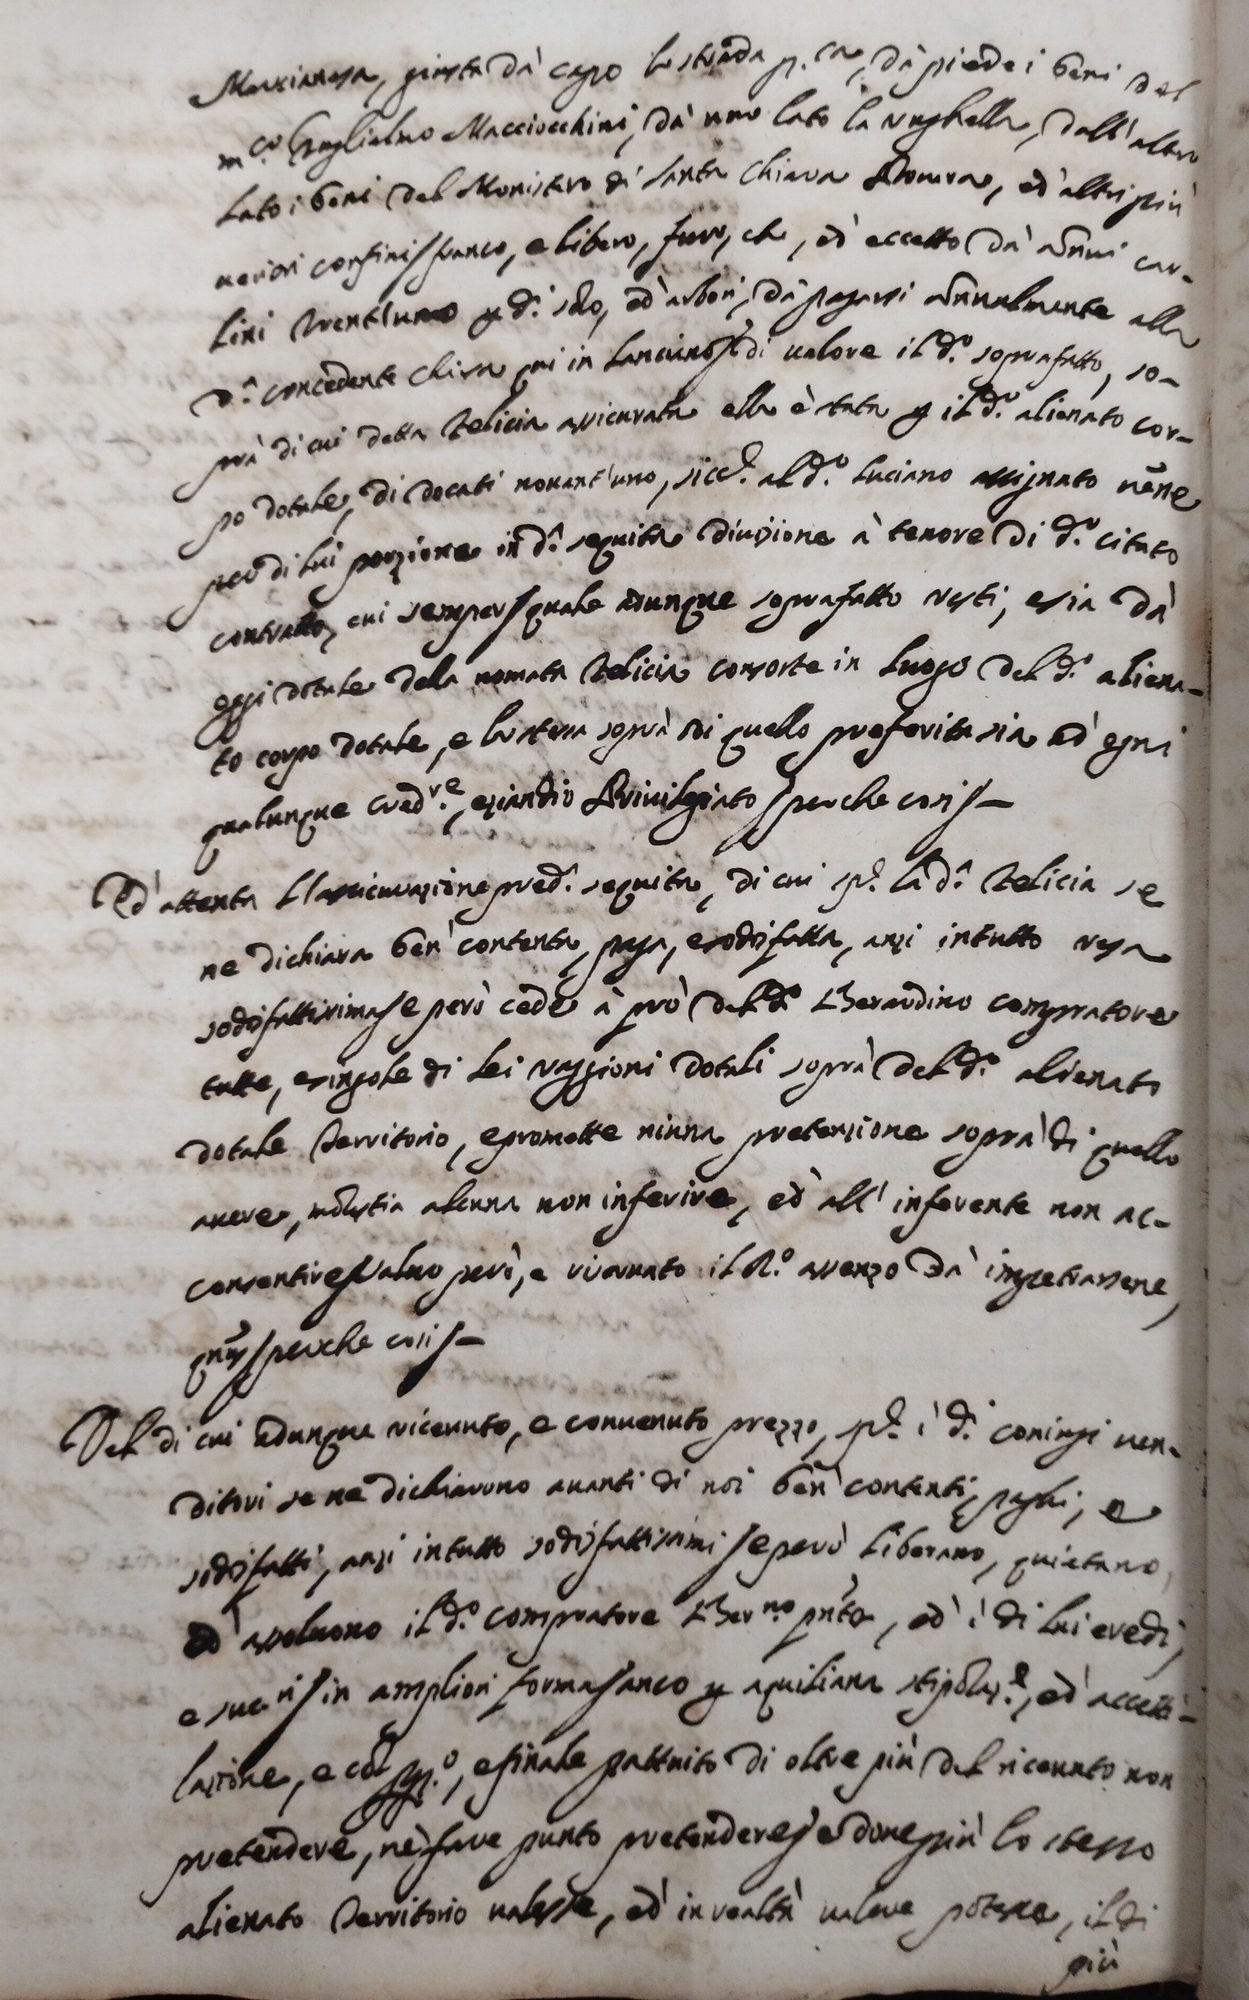 Marcianese, giusta da capo la strada p.ca, dà piede i beni del
m.co Guglielmo Macciocchini, dà uno lato la Vughella, dall'altro
lato i beni del Monistero di Santa Chiara Donera, ed'altri più
veriori confini/ franco, e libero, fuor, che, ed' eccetto dà annui car-
lini trent'uno p d.o solo, ed'arbori, dà pagarsi annualmente alla
d.a concedente Chiesa qui in Lanciano/ di valore il d.o soprafatto, so-
prà di cui detta Felicia assicurata ella è stata p il d.o alienato cor-
po dotale, di docati novant'uno, sicc.e al d.o Luciano assignato venne
per di lui porzione in d.a seguita divisione à tenore di d.o citato
contratto, cui semper/ quale adunque soprafatto resti, e sia dà
oggi dotale dela nomata Felicia consorte in luogo del d.o aliena-
to corpo dotale, e la stessa soprà di quello preferita sia ad' ogni
qualunque cred.re, eziandio Privilegiato/ perche così/ -
Ed' attenta l'assicurazione pred.a seguita, di cui sp.e la d.a Felicia se
ne dichiara ben' contenta, paga, e sodisfatta, anzi intutto resa
sodisfattissima/ e però cede à prò del d.o Berardino compratore
tutte, e singole di lei raggioni dotali soprà del d.o alienato
dotale Territorio, e promette niuna pretenzione soprà di quello
avere, molestia alcuna non inferire, ed' all' inferente non ac-
consentire/ salvo però, e riservato il R.o assenzo dà impetrarsene,
/ perche così/ -
Del di cui adunque ricevuto, e convenuto prezzo, sp.e i d.i coniugi ven-
ditori se ne dichiarono avanti di noi ben' contenti, paghi, e
sodisfatti, anzi intutto sodisfattissimi/ e però liberano, quietano,
ed' assolvono il d.o compratore Ber.no pnte, ed' i di lui eredi,
e suc.ri/ in amplion forma/ anco p aquiliana stipolaz.e, ed' accetti-
lazione, e col , e finale pattuito di oltre più del ricevuto non
pretendere, nè fare punto pretendere/ e done più lo stesso
alienato Territorio valesse, ed' in realtà valere potesse, il di
più